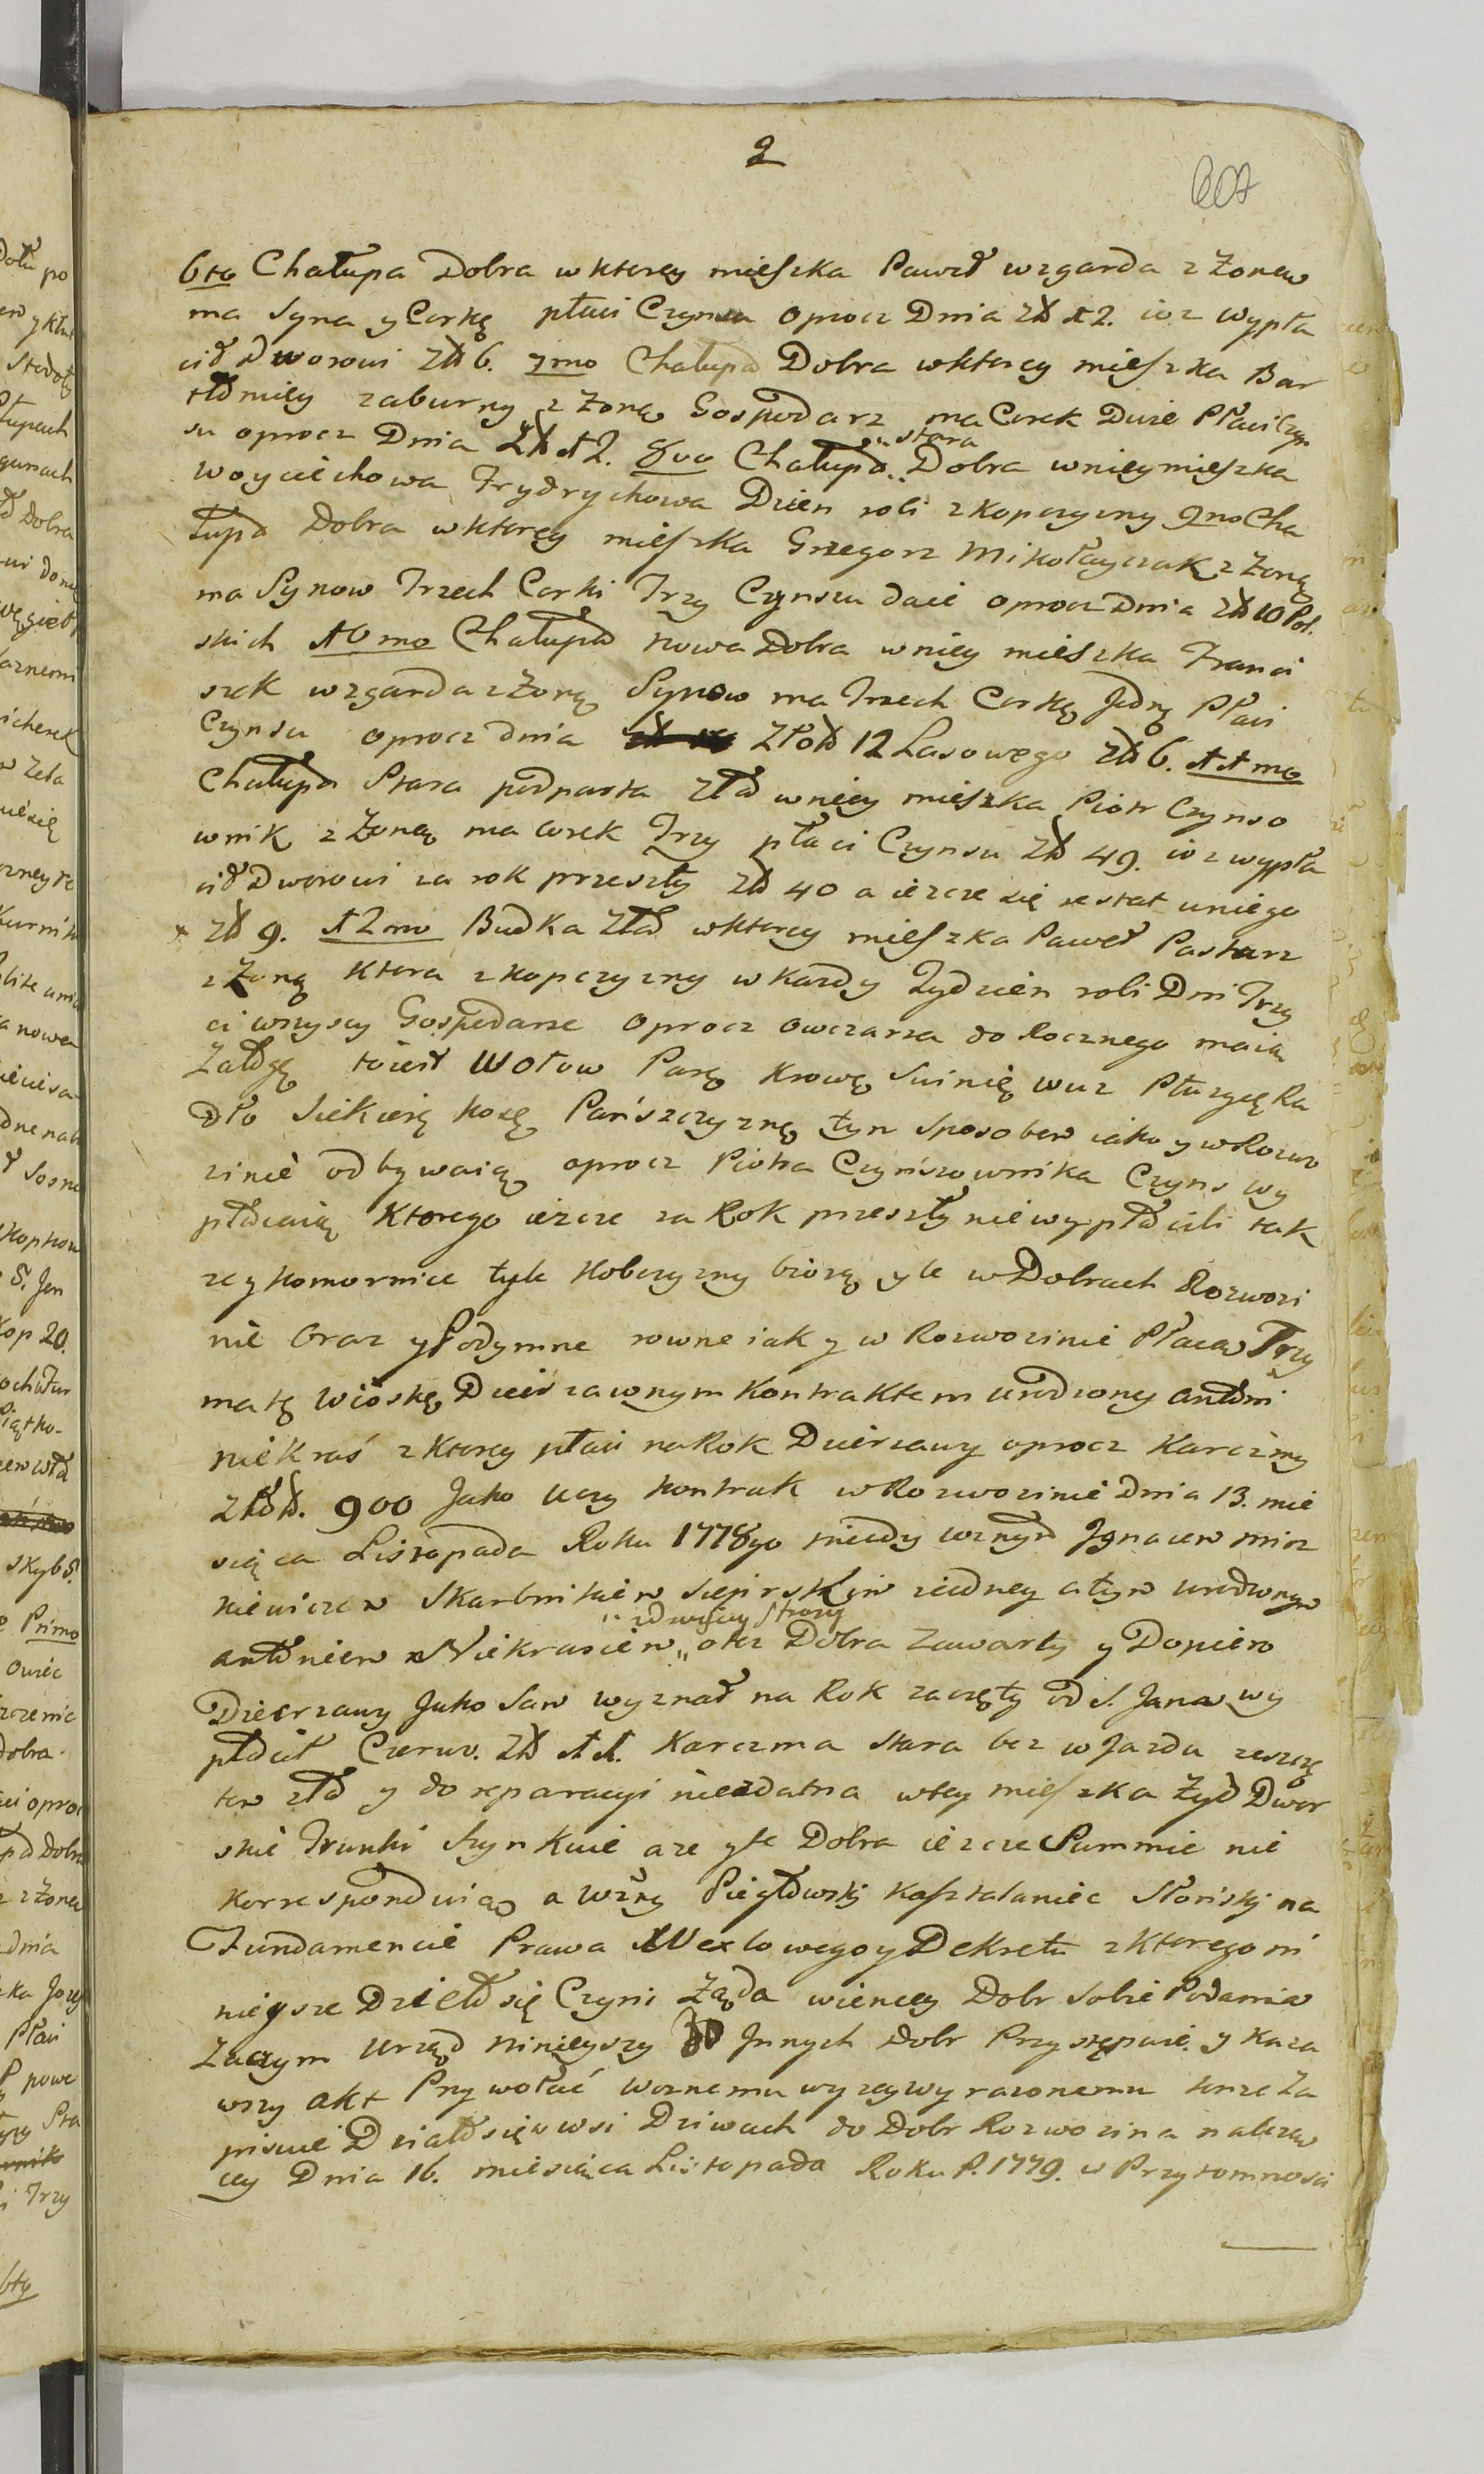 2
607
6to Chałupa Dobra w ktorey mieszka Paweł wzgarda z Żonąw
ma Syna y Corkę płaci Czynsu oprocz Dnia Zł 12. ioz wypła
cił Dworowi Zł 6. 7mo Chałupa Dobra w ktorey mieszka Bar
tłomiey zaburny z Żoną Gospodarz ma Corek Dwie Płaci Czyn
su oprocz Dnia Zł 12. 8vo Chałupa „stara Dobra w niey mieszka
Woyciechowa Frydrychowa Dzien robi z kopczyzny 9no Cha
łupa Dobra w ktorey mieszka Grzegorz Mikołayczak z Żoną
ma Synow Trzech Corki Trzy Czynszu daie oprocz Dnia Zł 10 Pol.
skich 10mo Chałupa nowa Dobra w niey mieszka Franci
szek wzgarda z Żoną Synow ma Trzech Corkę Jedną Płaci
Czynsu oprocz dnia Złoł 12 Lasowego Zł 6. 11mo
Chałupa Stara podparta Zła w niey mieszka Piotr Czynso
wnik z Żoną ma Corek Trzy płaci Czynsu Zł 49. ioz wypła
cił Dworowi za rok przeszły Zł 40 a ieszcze się restat u niego
+ Zł 9. 12mo Budka Zła w ktorey mieszka Paweł Pasturz
z Żoną Ktora z kopczyzny w Kazdy Tydzień robi Dni Trzy
ci wszyscy Gospodarze oprocz owczarza do Rocznego maią
Załogę toiest Wołow Parę Krowę Swinię wuz Płużycę Ra
dło Siekierę kosę Pańszczyznę tyn Sposobew iako y w Rozwo
zinie odbywaią oprocz Piotra Czynszownika Czyns wy
płacaią Ktorego ieszcze za Rok przeszły nie wypłacili tak
ze y komornice tyle kobczyzny biorą yle w Dobrach Rozwozi
nie Oraz y Podymne rowne iak y w Rozwozinie Płacą Trzy
ma tę wioskę Dzierzawnym Kontraktem urodzony antoni
niekraś z Ktorey płaci na Rok Dzierzawy oprocz Karczmy
Złłł. 900 Jako uczy kontrakt w Rozwozinie Dnia 13. mie
siąca Listopada Roku 1778go miedzy wznym Jgnacew
kiewiczew Skarbnikiew ziedney a tyw urodzonyw
antoniew Niekrasiew „zdrugiey Strony otez Dobra zawarty y Dopiero
Dzierzawy Jako Saw wyznał na Rok zaczęty od S. Jana wy
płacił Czerw. Zł 11. Karczma stara bez wJazdu zeszczę
tew zła y do reparacyi niezdatna w tey mieszka Żyd Dwor
skie Trunki Szynkuie aze yte Dobra ieszcze Summie nie
korrespondwią a Wżny Piegłowski Kasztalanic Słoński na
Fundamencie Prawa Wexlowego y Dekretu z Ktorego ni
nieysze Dzieło się Czyni Ząda wiencey Dobr Sobie Podania
Zaczym urząd ninieyszy do Jnnych Dobr Przystępuie. y Kaza
wszy akt Przywołać woznemu wyzey wyrazonemu tenze Za
pisuie Działo się w wsi Dziwach do Dobr Rozwozina nalezą
cey Dnia 16. miesiąca Listopada Roku P. 1779. w Przytomnosci